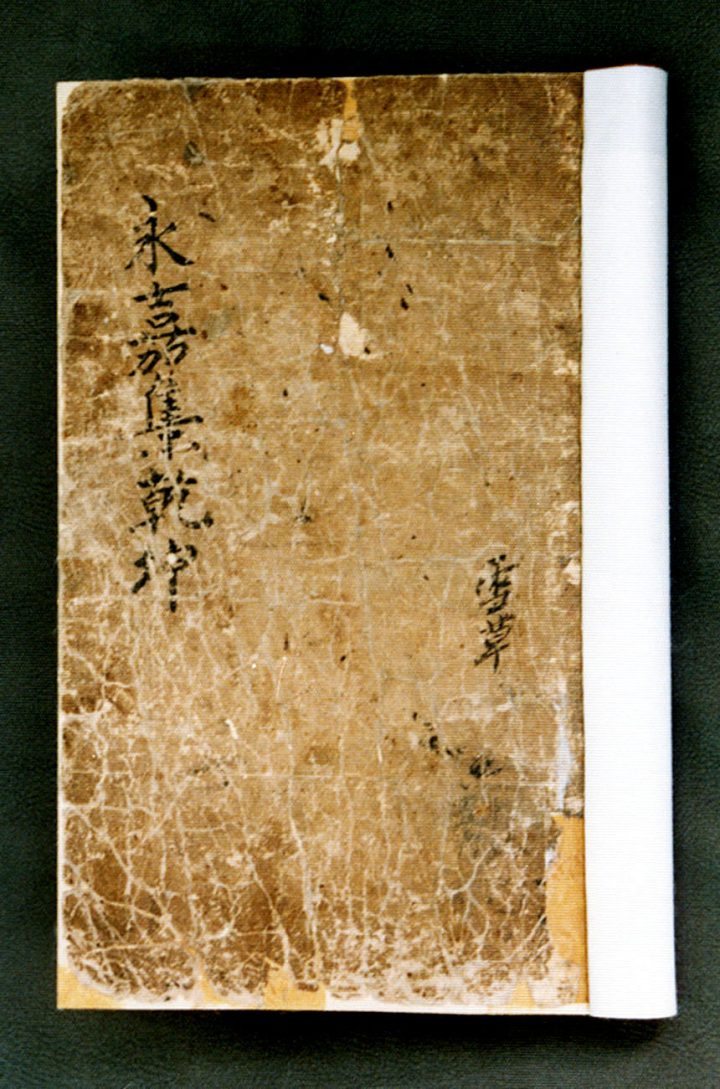 永嘉集乾坤
雪草